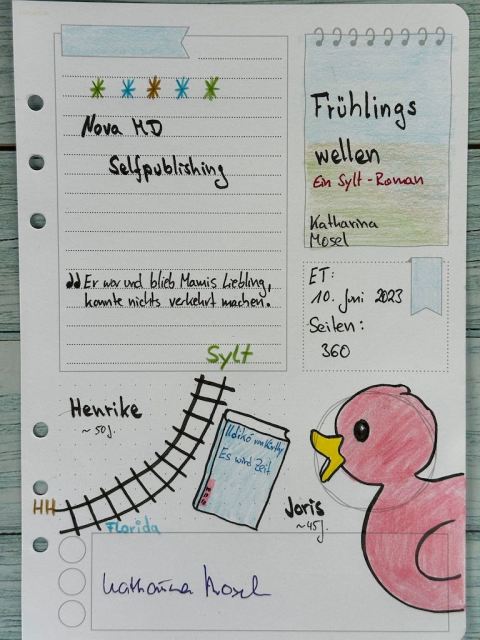 Nova MD
Selfpublishing
Frühlings
wellen
Ein Sylt-Roman
Katharina
Mosel
„Er war und blieb Mamis Liebling,
konnte nichts verkehrt machen.
ET:
10. Juni 2023
Seiten:
360
Sylt
Henrike
~50J.
Ildikó von Kürthy
Es wird Zeit
HH
Florida
Joris
~45J.
Katharina Mosel